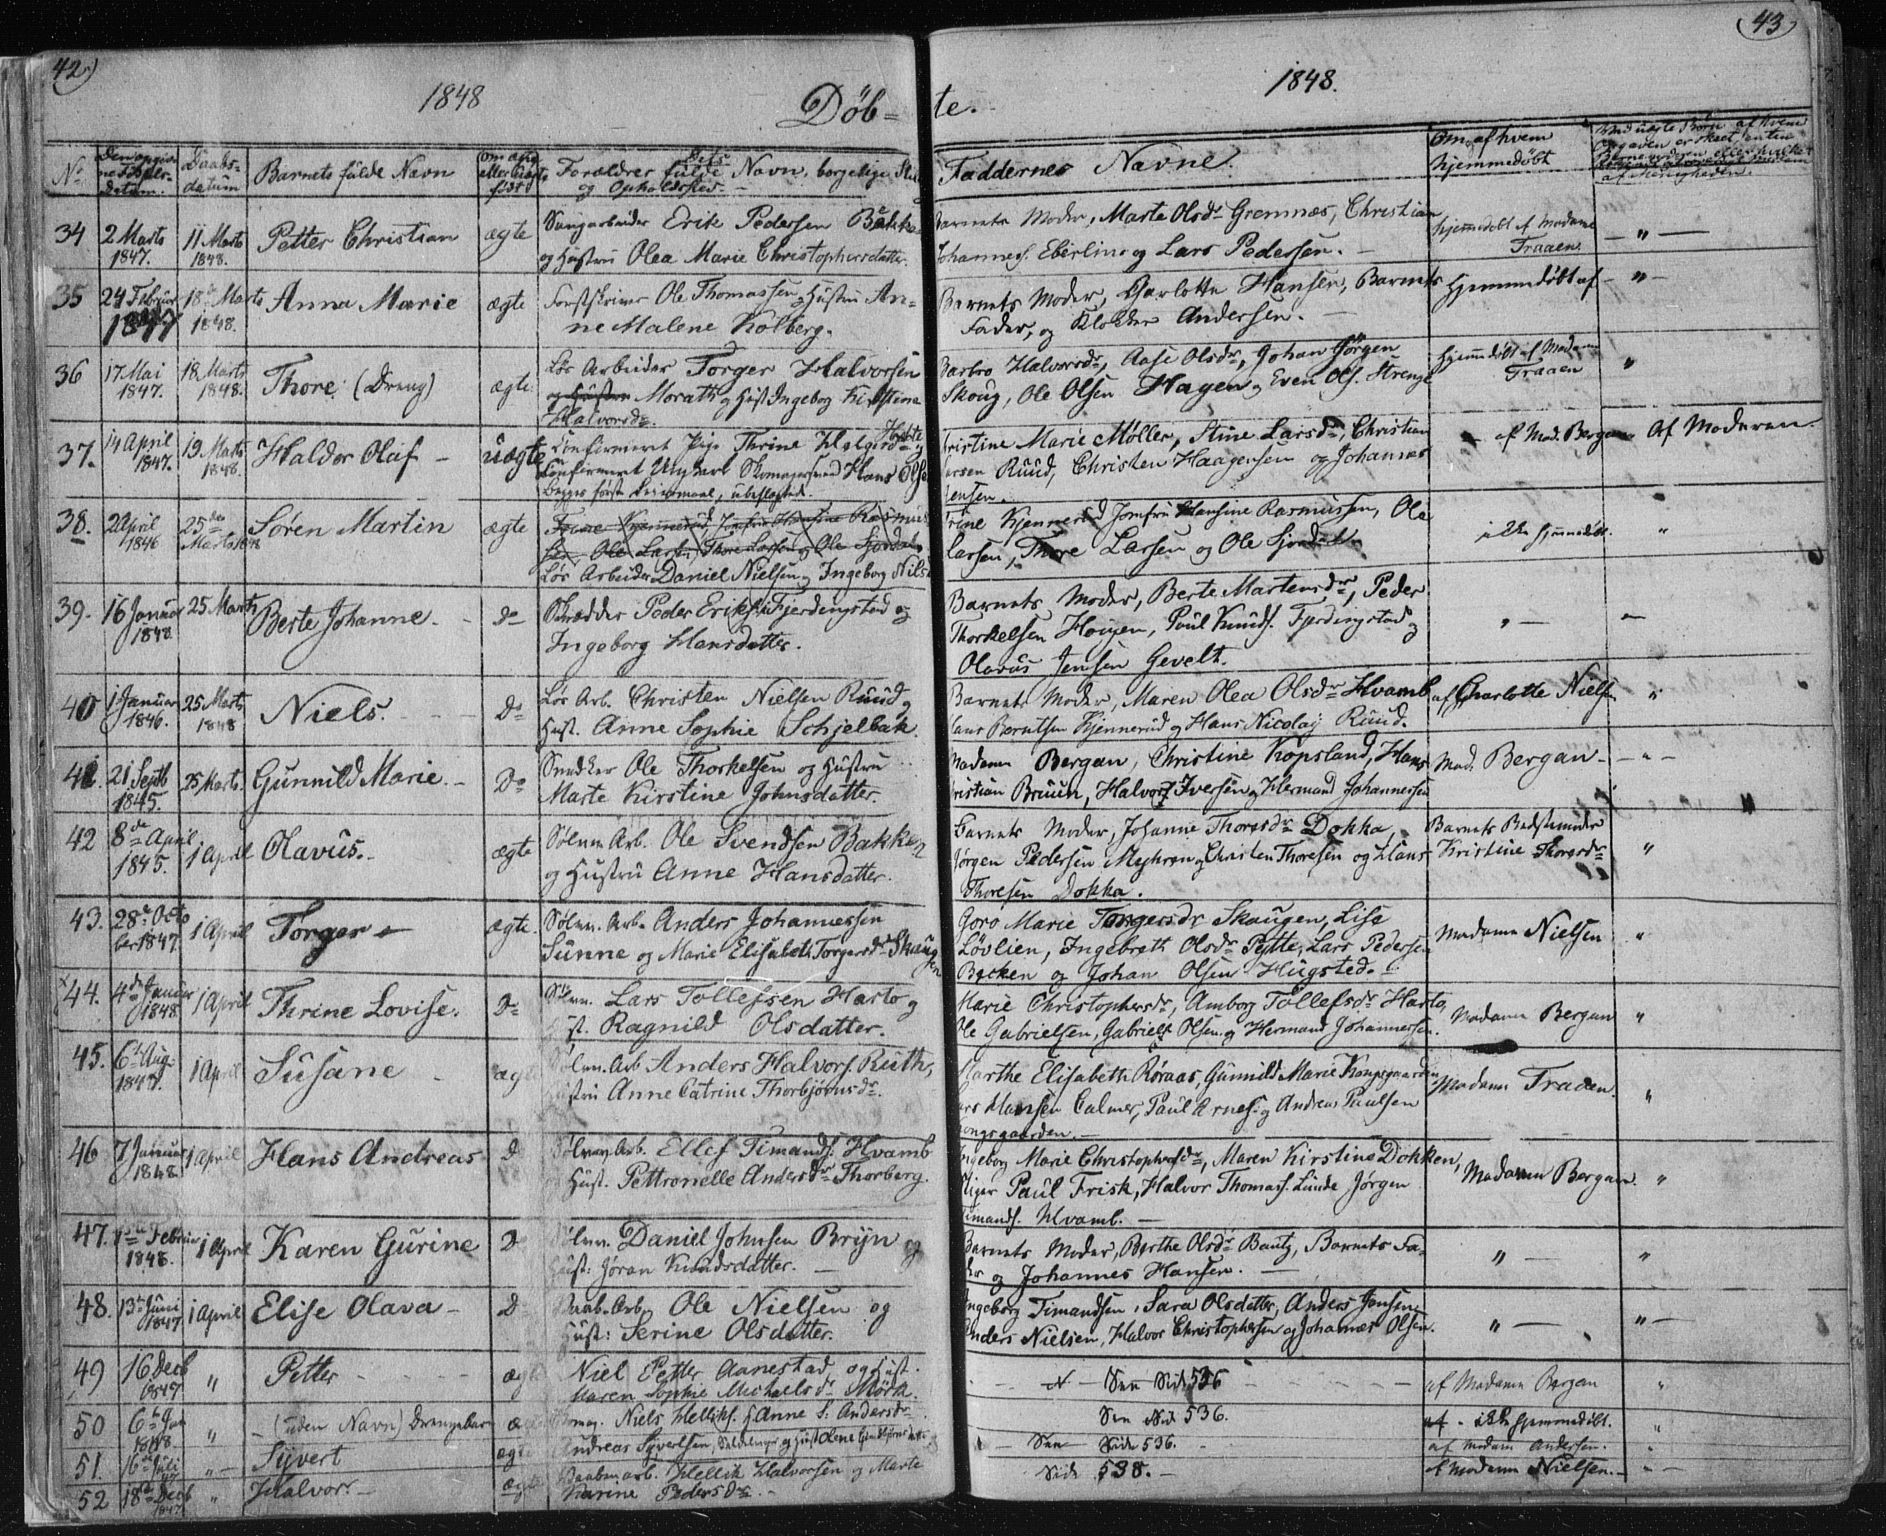 42)
1848
Döb=
No
Den opgiv
ne Födsels-
datum.
Daabs-
datum
Barnets fulde Navn
om ægte
eller Uægte
födt
Forældres fulde Navn, borgelige Stil
og Opholdssted.
34
2 Marts
1847.
11 Marts
1848.
Petter Christian
ægte
Erik Pedersen Bakke
og Hustru Olea Marie Christophersdatter.
35
24 Febru
1847
18 Marts
1848.
Anna Marie
ægte
Ole Thomassen og Hustru An-
ne Malene Kolberg.
36
17 Mai
1847.
18 Marts
1848.
Thore (Dreng)
ægte
Lös Arbeider Torger Halvorsen
og Hustru Morath og Hust Ingeborg Kirstine
Halvorsdr.
37.
14 April
1847.
19 Marts
1848.
Haldor Olaf -
uægte
Confirmeret Pige Thrine
Confirmeret Ungkarl Skomagersvend Hans Olse
Begges förste Leiermaal, ubeslægted.
38.
2 April
1846
25de
Marts 1848
Sören Martin
ægte
Trine Kjennerud, Jomfru Hansine Rasmus
sen, Ole Larsen, Thore Larsen og Ole Sjordal
Lös Arbeider Daniel Nielsen og Ingeborg Nils
39.
16 Januar
1848
25 Marts
Berte Johanne. -
Do
Skrædder Peder Eriks. Fjerdingstad og
Ingeborg Hansdatter.
40
1 Januar
1846.
25 Marts
1848
Niels.
Do
Lös Arb. Christen Nielsen Ruud og
Hust. Anne Sophie Schjelbæk.
41.
21 Septb
1845.
25 Marts.
Gunnild Marie. -
Do
Snedker Ole Thorkelsen og Hustru
Marte Kirstine Johnsdatter.
42
8de April
1845.
1 April
Olavus. -
ægte
Sölvv. Arb. Ole Svendsen Bakken
og Hustru Anne Hansdatter.
43.
28 Octo
ber 1847.
1 April
Torger -
ægte.
Sölvv. Arb. Anders Johannessen
Sunne og Marie Elisabeth Torgersdr Skaugen
44.
4de Januar
1848
1 April
Thrine Lovise.
Do
Sölvv. Lars Tollefsen Harto og
Hust. Ragnild Olsdatter.
45.
6t Aug.
1847.
1 April
Susane -
ægte
Sölvv. Arb Anders Halvors. Ruth,
Hustru Anne Catrine Thorbjörnsdr.
46
7 Januar
1848
1 April
Hans Andreas
D
Sölvv. Arb. Ellef Timands. Hvamb
og Hust. Pettronelle Andersdr Thorberg.
47.
1ste Februar
1848.
1 April
Karen Gurine
D
Sölvv. Daniel Johnsen Bryn og
Hust: Göran Knudsdatter. -
48.
13t Juni
1847
1 April
Elise Olava -
D
Vaab. Arb. Ole Nielsen og
Hust: Serine Olsdatter.
49
16 Decb
1847
"
Petter
ægt
Niel Petter Aanestad og Hust.
Maren Sophie Michaelsdr Mörk.
50
6t Ja
1848
"
(uden Navn) Drengebarn
æg
Niels Helliks. og Anne S. Andersdr
51.
16 Juli
"
Syvert
ægte
Andreas Syvertsen,
52
18 Decb
1847
"
Halvor -
ægte
Vaabenarb. Hellik Halvorsen og Marte
Karine Pedersdr. -
43)
1848.
te.
Faddernes Navne.
Om, af hvem
hjemmedöbt
Ved uægte Börn af hvem
af Menigheden.
Barnets Moder, Marte Olsdr Gremnæs, Christian
Johannes. Eberling og Lars Pedersen. -
hjemmedöbt af Madame
Traaen
- " -
Barnets Moder, Charlotte Hansen, Barnets
Fader, og Klokker Andersen. -
Hjemmedöbt af
- " -
Barbro Halvorsdr, Aase Olsdr, Johan Jörgen
Skoug, Ole Olsen Hagen og Even Ols. Strenge
Hjemmedöbt af Madam
Traaen
"
Kristine Marie Möller, Stine Larsdr, Christian
Larsen Ruud, Christen Haagensen og Johannes
Jensen.
- af Mad. Bergan
Af Moderen.
Trine Kjennerud Jomfru Hansine Rasmussen, Ole
Larsen, Thore Larsen og Ole Sjordal
ikke hjemmedöbt.
"
Barnets Moder, Berte Martensdr, Peder
Thorkelsen Hougen, Paul Knuds. Fjerdingstad og
Olavus Jensen Gevelt.
" -
-
Barnets Moder, Maren Olea Olsdr Hvamb
Hans Berntsen Kjennerud og Hans Nicolay Ruud.
af Charlotte Nielsen
"
Madamn Bergan, Christine Kopsland, Hans
Kristian Bruun, Halvor Iversen og Hermand Johannersen
Mad. Bergan -
- " -
Barnets Moder, Johanne Thoresdr Dokka,
Jörgen Pedersen Myhren og Christen Thoresen og Hans
Thoresen Dokka.
Barnets Bedstemoder
Kristine Thoresdr
"
Goro Marie Torgersdr Skaugen, Lise
Lövlien, Ingebreth Olsdr Pytte, Lars Pedersen
Backen og Johan Olsen Hugsted. -
Madame Nielsen
"
Marie Christophersdr, Amborg Tollefsdr Harto,
Ole Gabrielsen, Gabriel Olsen og Hermand Johannersen.
Madamn Bergan
"
Marthe Elisabeth Röraas, Gunnild Marie Kongsgaarden,
Lars Hansen Calmer, Paul Arnes. og Andreas Paulsen
Kongsgaarden. -
Madamn Traaen.
"
Ingeborg Marie Christophersdr, Maren Kirstine Dokken,
Paul Frisk, Halvor Thomas. Lunde Jörgen
Timands. Hvamb. -
Madamn Bergan.
"
Barnets Moder, Berthe Olsdr Bautz, Barnets Fa-
der og Johannes Hansen. -
" -
"
Ingeborg Timandsen, Sara Olsdatter, Anders Jensen
Anders Nielsen, Halvor Christophersen og Johannes Olsen.
" -
" -
See Side 536
af Madamn Bergan
"
See Side 536.
af - ikke hjemmedöbt.
"
- See Side 536. -
af Madam Andersen.
"
Side 538. -
af Madamn Nielsen. -
" -